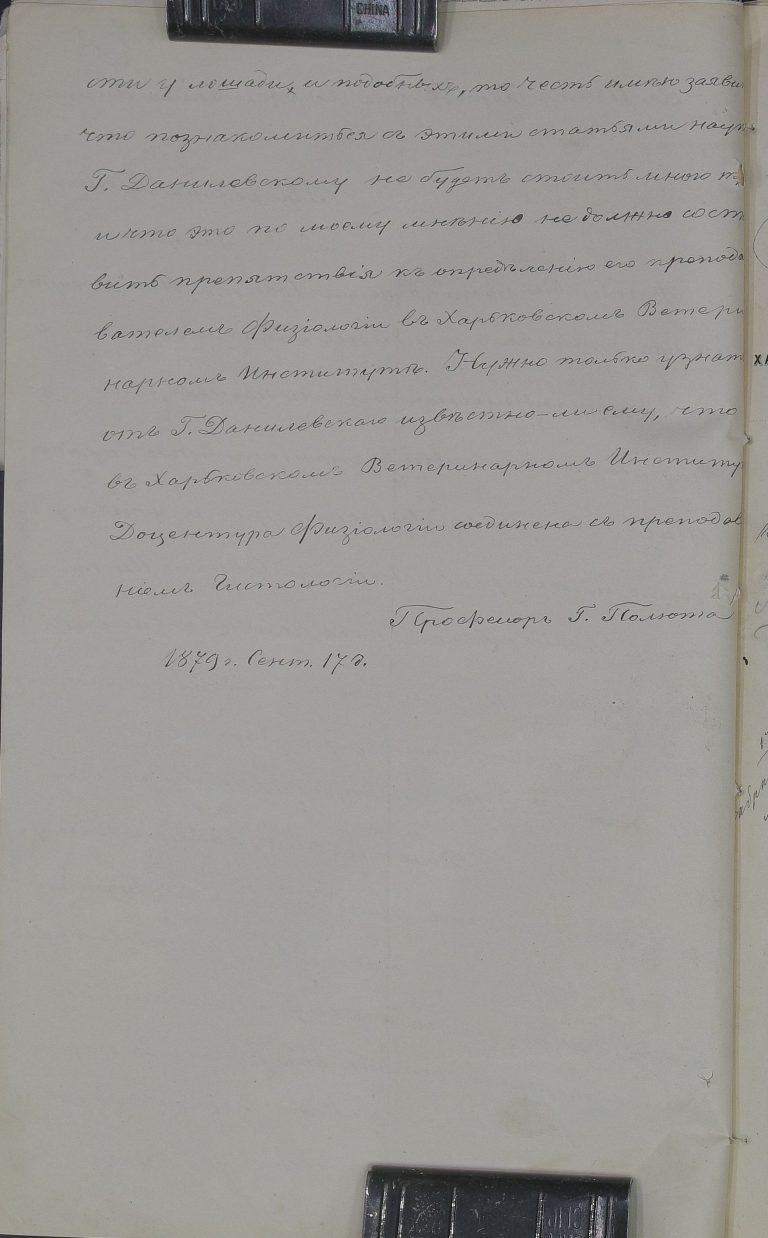 CHINA
сти у лошади, и подобныхъ, то честь имѣю заяви
что познакомиться съ этими статьями науки
Г. Данилевскому не будетъ стоить много
и что это по моему мнѣнію не должно соста
вить препятствія къ опредѣленію его препода
вателемъ Физіологіи въ Харьковскомъ Ветери
нарномъ Институтѣ. Нужно только узнат
отъ Г. Данилевскаго извѣстно-ли ему, что
въ Харьковскомъ Ветеринарномъ Институ
Доцентура Физіологіи соединена съ преподав
ніемъ Гистологіи.
Професоръ Г. Полюта
1879 г. Сент. 17 д.